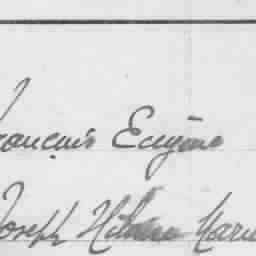 François Eugène
Joseph Hilaire Marie